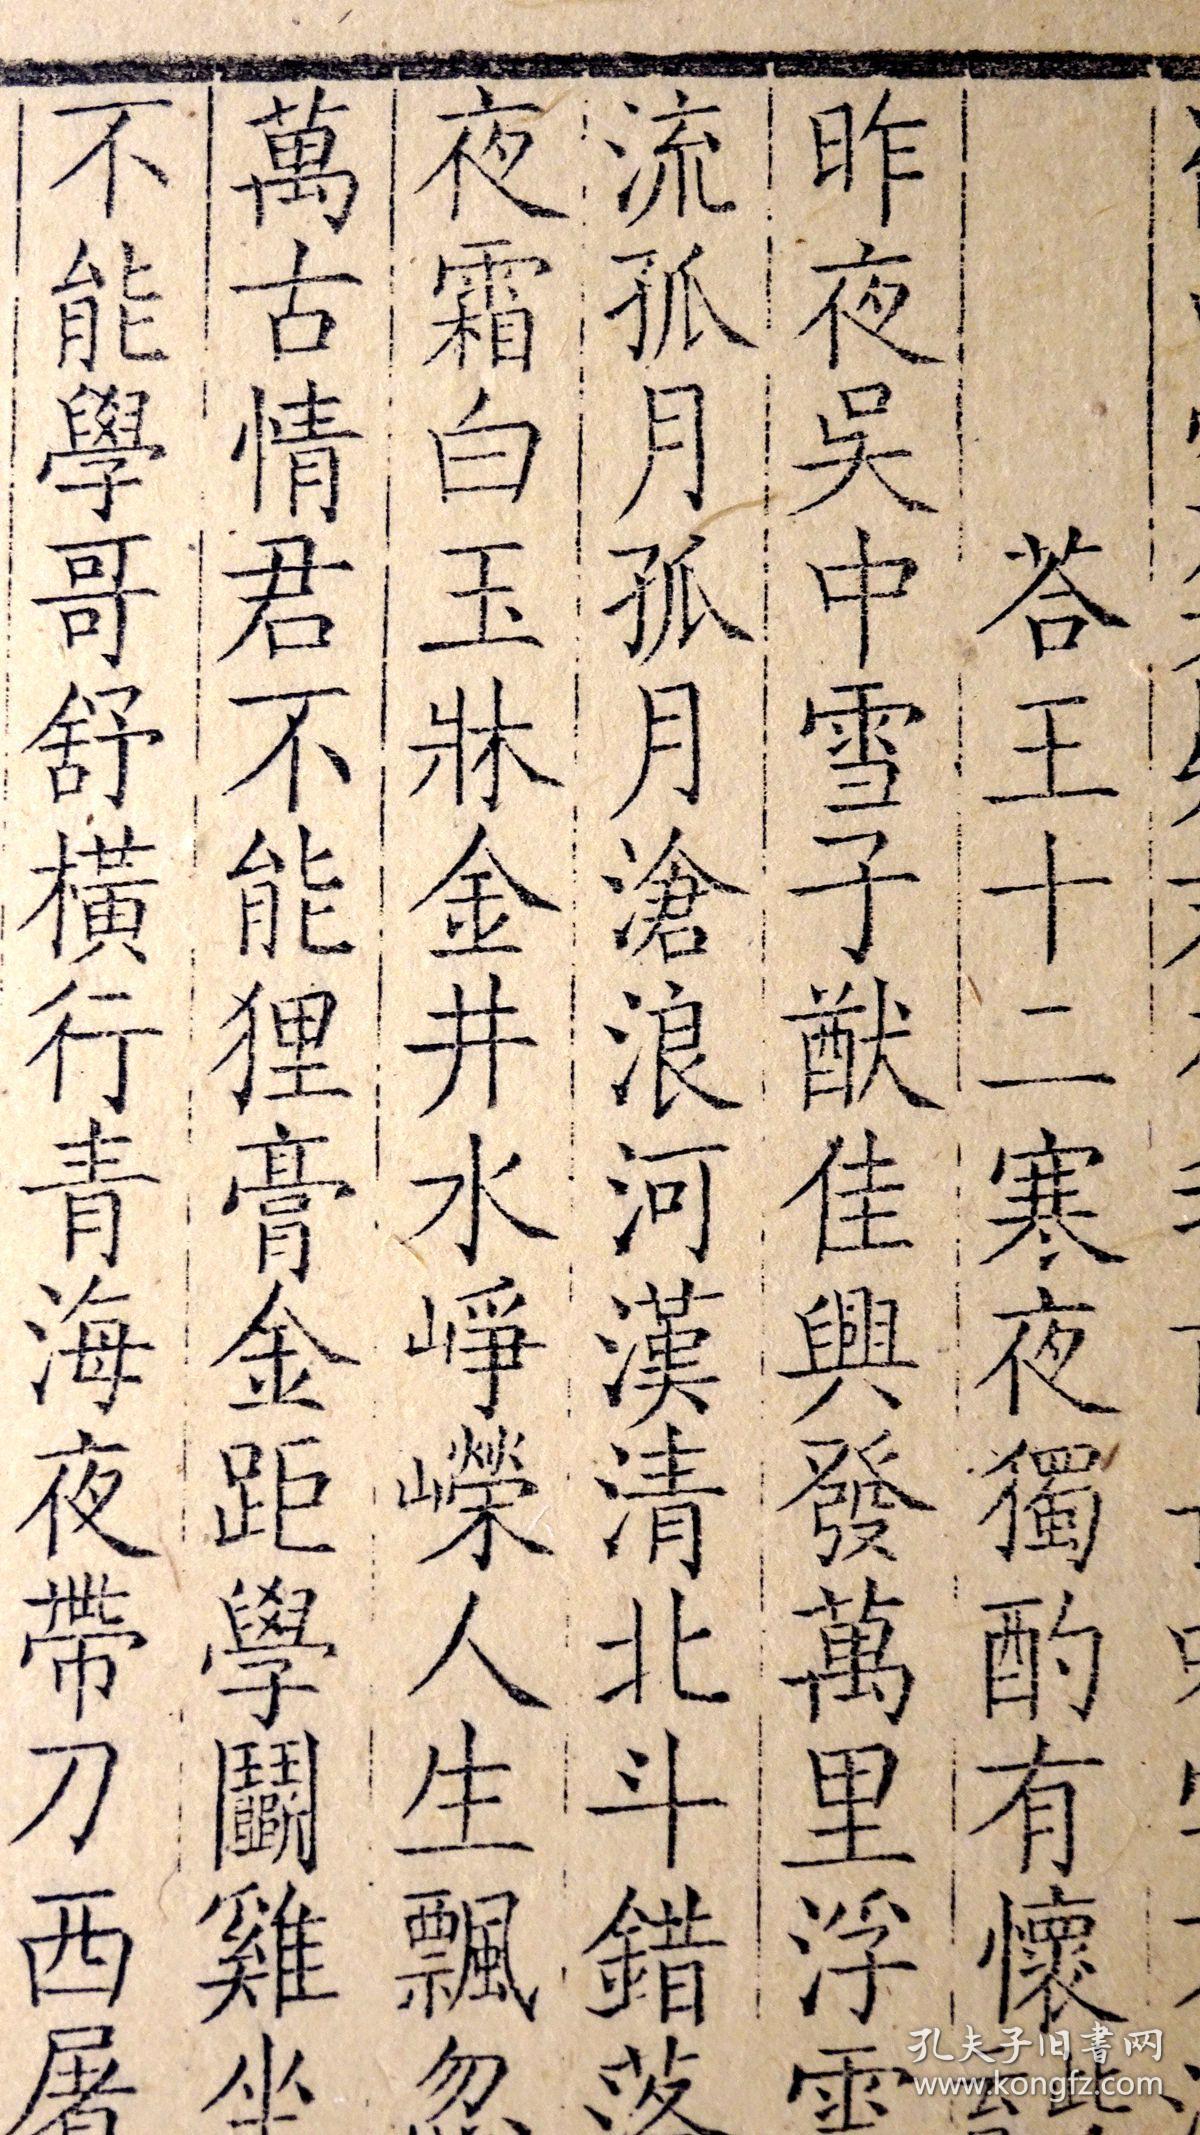 荅王十二寒夜獨酌有懷
昨夜吳中雪子猷佳興發萬里浮雲
流孤月孤月滄浪河漢清北斗錯落
夜霜白玉牀金井水崢嶸人生飄忽
萬古情君不能狸膏金距學鬭雞坐
不能學哥舒橫行青海夜帶刀西屠
孔夫子旧书网
www.kongfz.com